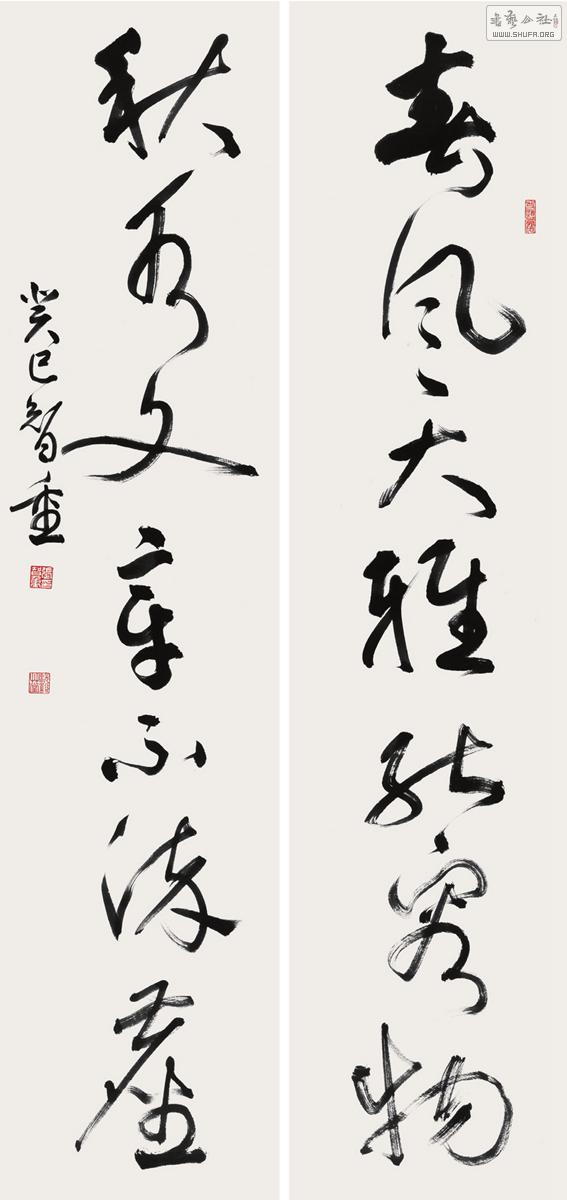 春風大雅能容物
秋水文章不染塵
癸巳智重
書藝公社
WWW.SHUFA.ORG